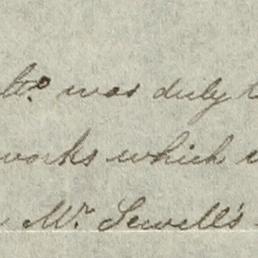 was duly
works which
Mr. Sewell's